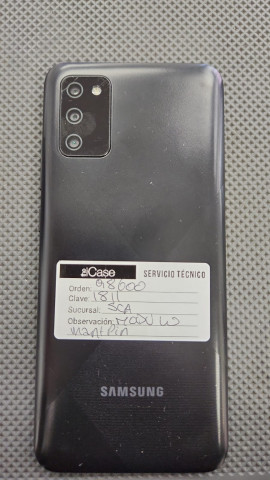 elCase SERVICIO TÉCNICO
Orden: 98600
Clave: 1811
Sucursal: SCA
Observación:
SAMSUNG